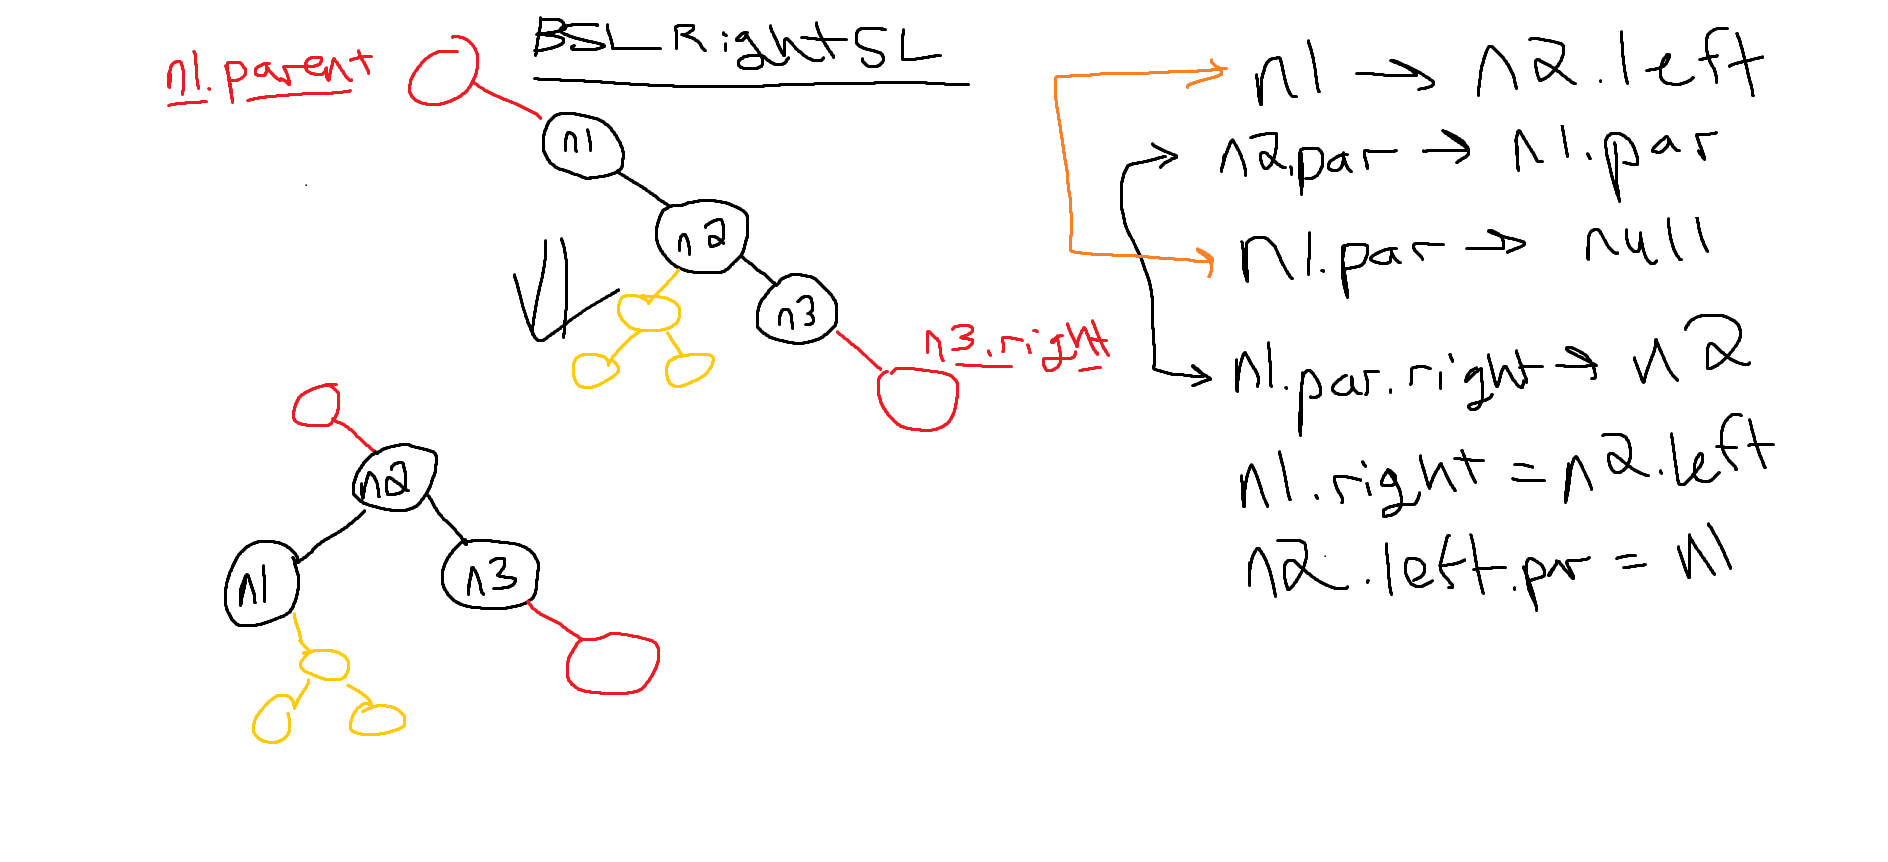 BSL Right SL
n1.parent
n1
n2
n3
n3.right
n2
n1
n3
n1 → n2.left
n2.par → n1.par
n1.par → null
n1.par.right → n2
n1.right = n2.left
n2.left.par = n1